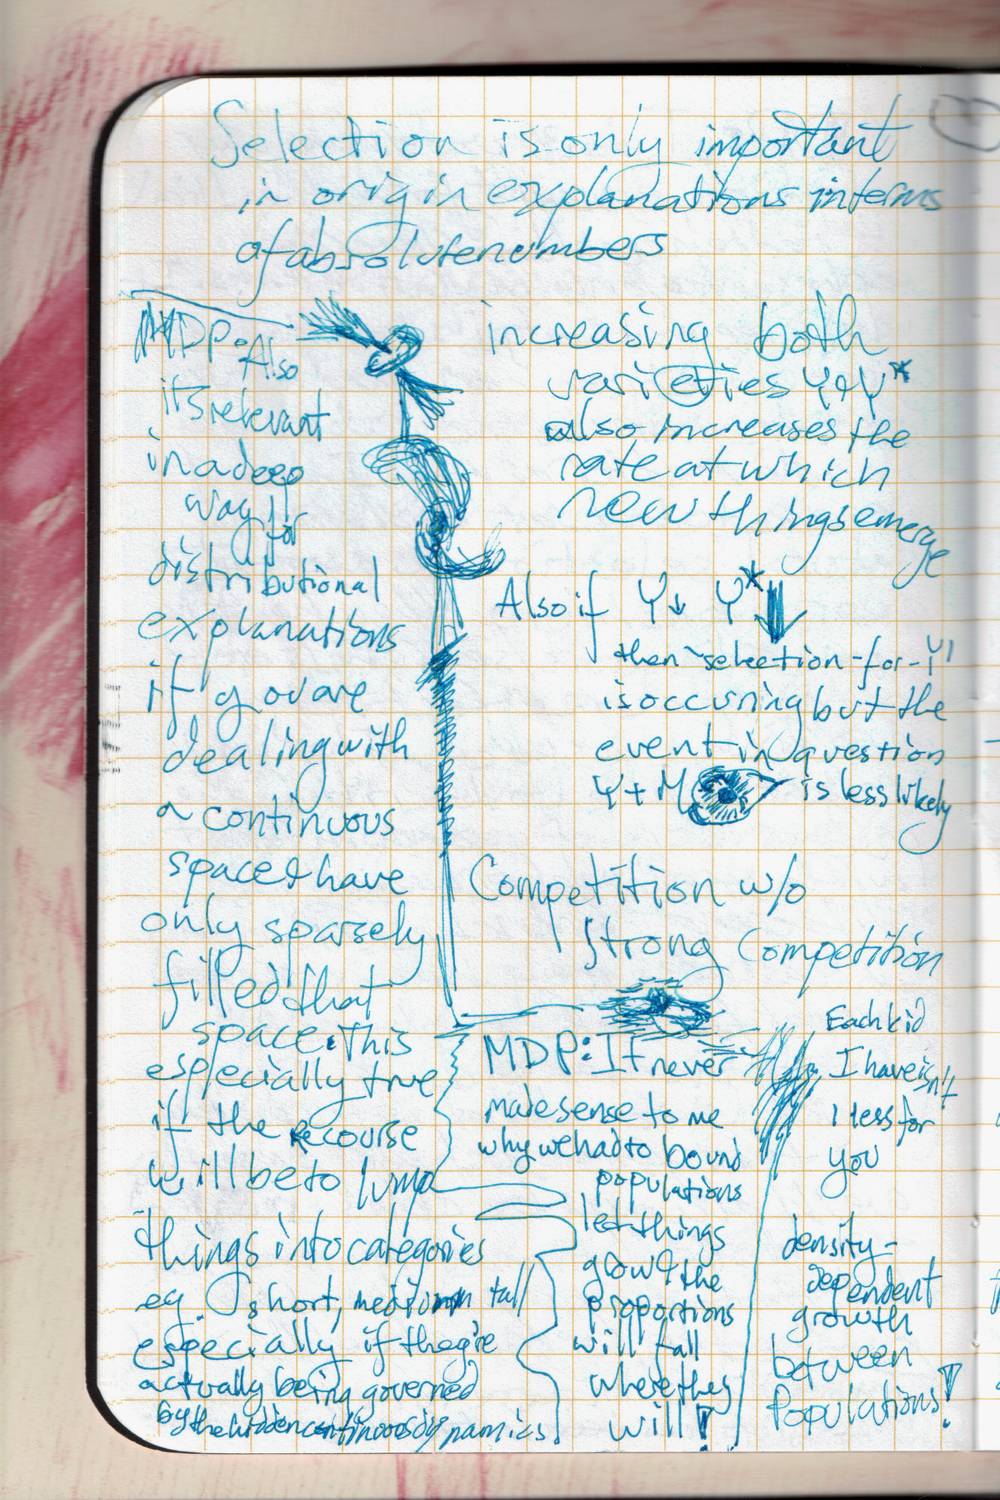 Selection is only important
in origin explanations in terms
of absolute numbers
MDP: Also
its relevant
in a deep
way!! for
distributional
explanations
if you are
dealing with
a continuous
space & have
only sparsely
filled that
space. This
especially true
if the recourse
will be to lump
things into categories
eg short, medium tall
especially if they're
actually being governed
by the hidden continuous dynamics.
increasing both
varieties Y & Y*
also increases the
rate at which
new things emerge
Also if Y↓ Y*↓
then "selection-for-Y"
is occuring but the
event in question
Y + M is less likely
Competition w/o
Strong Competition
MDP: It never
made sense to me
why we had to bound
populations
let things
grow & the
proportions
will fall
where they
will!
Each kid
I have isn't
1 less for
you
density-
dependent
growth
between
Populations!